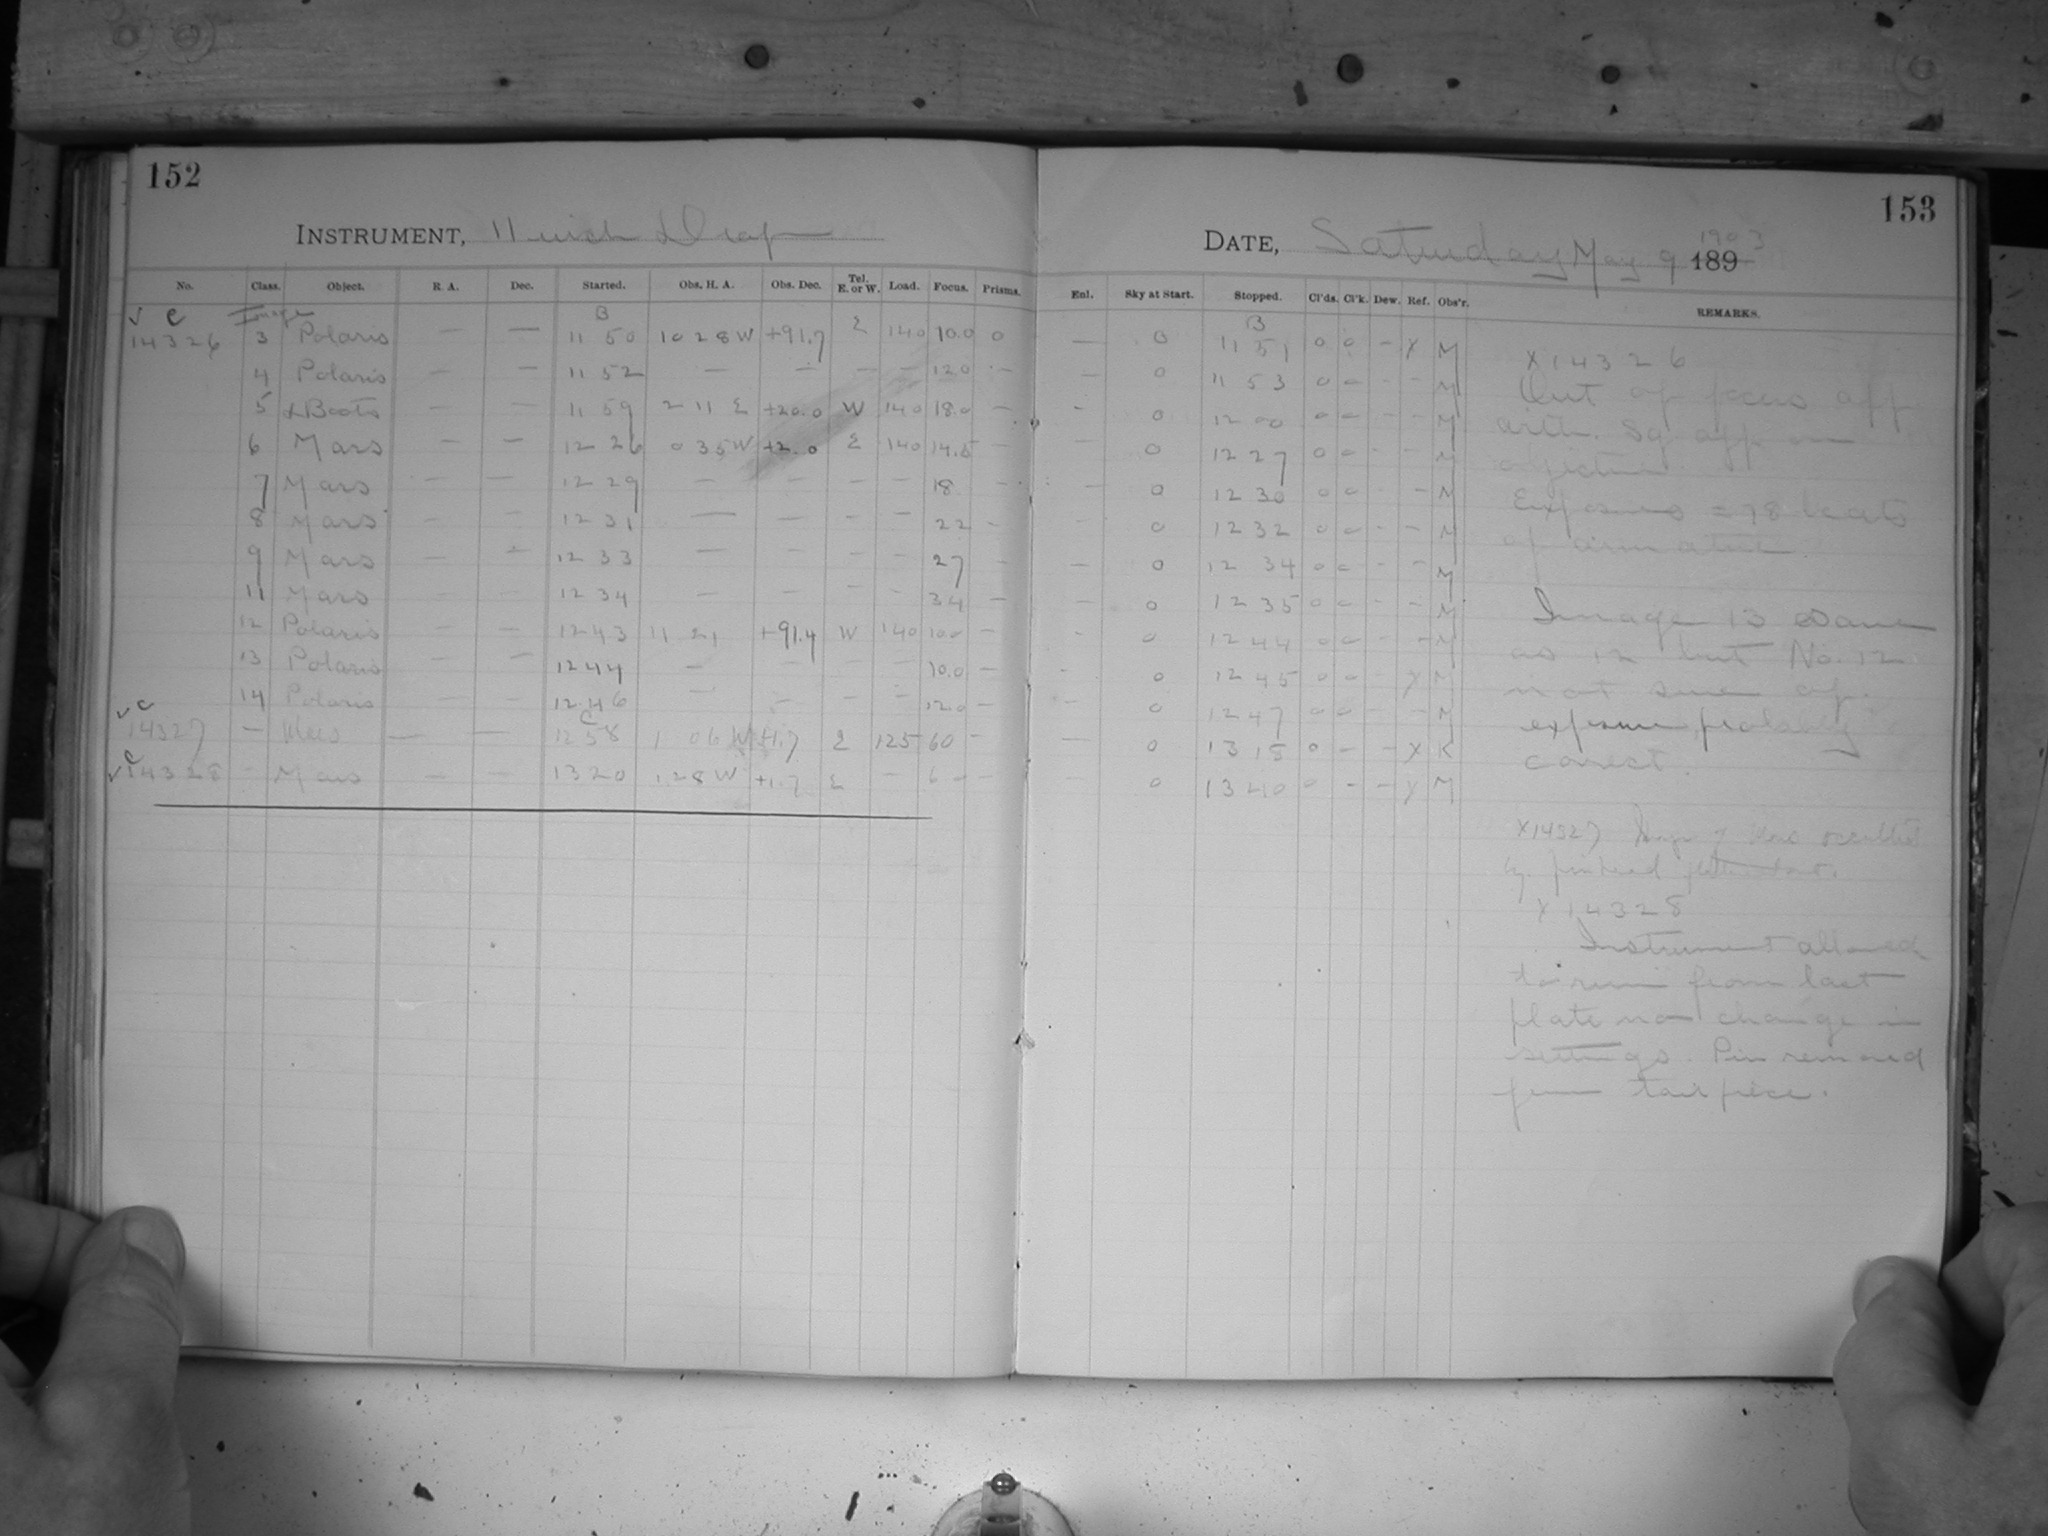 152
INSTRUMENT, 11 inch Drap
No. Class. Object. R. A. Dec. Started. Obs. H. A. Obs. Dec. Tel. E. or W. Load. Focus. Prisms.
√ C Image B
14326 3 Polaris — — 11 50 10 28 W +91.7 E 140 10.0 0
4 Polaris — — 11 52 — — — — 12.0 —
5 α Boots — — 11 59 2 11 E +20.0 W 140 18.0 —
6 Mars — — 12 26 0 35 W +2.0 E 140 14.5 —
7 Mars — — 12 29 — — — — 18 —
8 Mars — — 12 31 — — — — 22 —
9 Mars — — 12 33 — — — — 27 —
11 Mars — — 12 34 — — — — 34 —
12 Polaris — — 12 43 11 21 +91.4 W 140 10.0 —
13 Polaris — — 12 44 — — — — 10.0 —
14 Polaris — — 12 46 — — — — 12.0 —
√ C C
14327 — Mars — — 12 58 1 06 W +1.7 E 125 60 —
√ C
14328 — Mars — — 13 20 1 28 W +1.7 E — 6 — —
153
DATE, Saturday May 9 1903 189
Enl. Sky at Start. Stopped. Cl'ds. Cl'k. Dew. Ref. Obs'r. REMARKS.
B
— 0 11 51 0 0 — X M
— 0 11 53 0 0 — — M
— 0 12 00 0 0 — — M
0 12 27 0 0 — — M
— 0 12 30 0 0 — — M
— 0 12 32 0 0 — — M
— 0 12 34 0 0 — — M
— 0 12 35 0 0 — — M
— 0 12 44 0 0 — — M
— 0 12 45 0 0 — X M
— 0 12 47 0 0 — — M
— 0 13 15 0 — — X K
— 0 13 40 0 — — X M
X 14326
Out of focus app
with. Sq app on
objective
Exposures = 78 beats
of armature.
Image 13 same
as 12 but No. 12
not sure of
exposure, probably
correct.
X14327 Image of Mars occulted
by pinhead
X 14328
Instrument allowed
to run from last
plate no change in
settings. Pin removed
from tail piece.